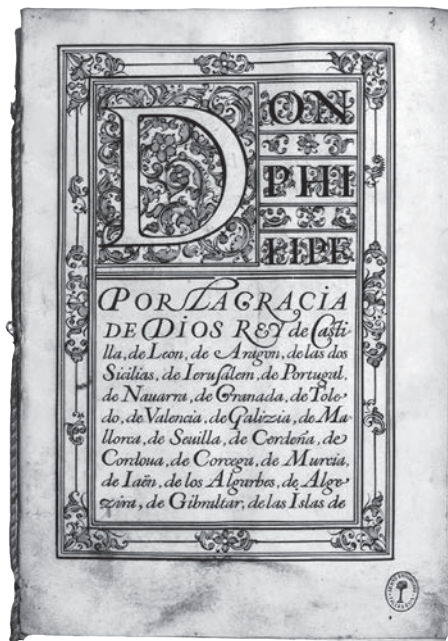 DON
PHI
LIPE
POR LA GRACIA
DE DIOS REY de Casti-
lla, de Leon, de Aragon, de las dos
Sicilias, de Ierusalem, de Portugal,
de Nauarra, de Granada, de Tole-
do, de Valencia, de Galizia, de Ma-
llorca, de Seuilla, de Cerdeña, de
Cordoua, de Corcega, de Murcia,
de Iaën, de los Algarbes, de Alge-
zira, de Gibraltar, de las Islas de